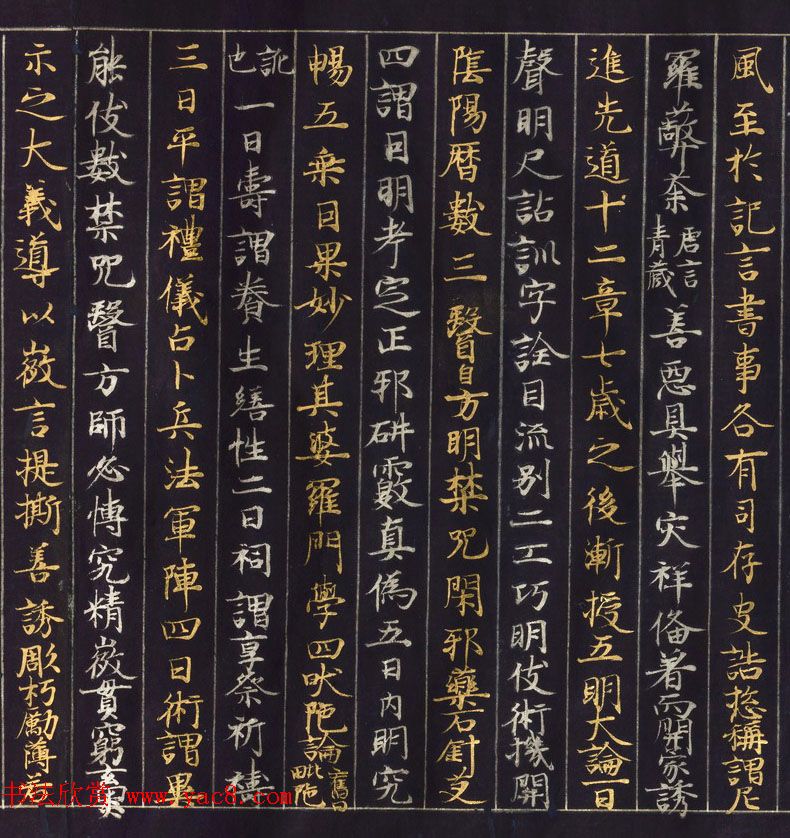 風至於記言書事各有司存史誥揔稱謂尼
羅蔽荼唐言青藏善惡具舉灾祥俻著而開家誘
進先道十二章七歲之後漸授五明大論一曰
聲明尺詁訓字詮目流別二工巧明伎術機開
陰陽暦數三醫自方明禁咒閑邪藥石針艾
四謂因明考定正邪研覈真偽五曰內明究
暢五乗因果妙理其婆羅門學四吠陁論舊曰毗陁
訛也一曰壽謂養生繕性二曰祠謂享祭祈禱
三曰平謂禮儀占卜兵法軍陣四曰術謂異
能伎數禁咒醫方師必博究精微貫窮玄奧
示之大義導以微言提撕善誘彫朽勵薄若
书法欣赏 www.yac8.com